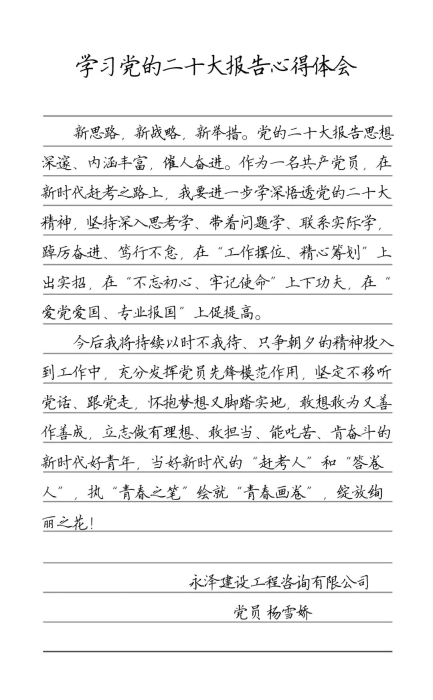 学习党的二十大报告心得体会
新思路，新战略，新举措。党的二十大报告思想
深邃、内涵丰富，催人奋进。作为一名共产党员，在
新时代赶考之路上，我要进一步学深悟透党的二十大
精神，坚持深入思考学、带着问题学、联系实际学，
踔厉奋进、笃行不怠，在“工作摆位、精心筹划”上
出实招，在“不忘初心、牢记使命”上下功夫，在“
爱党爱国、专业报国”上促提高。
今后我将持续以时不我待、只争朝夕的精神投入
到工作中，充分发挥党员先锋模范作用，坚定不移听
党话、跟党走，怀抱梦想又脚踏实地，敢想敢为又善
作善成，立志做有理想、敢担当、能吃苦、肯奋斗的
新时代好青年，当好新时代的“赶考人”和“答卷
人”，执“青春之笔”绘就“青春画卷”，绽放绚
丽之花！
永泽建设工程咨询有限公司
党员 杨雪娇